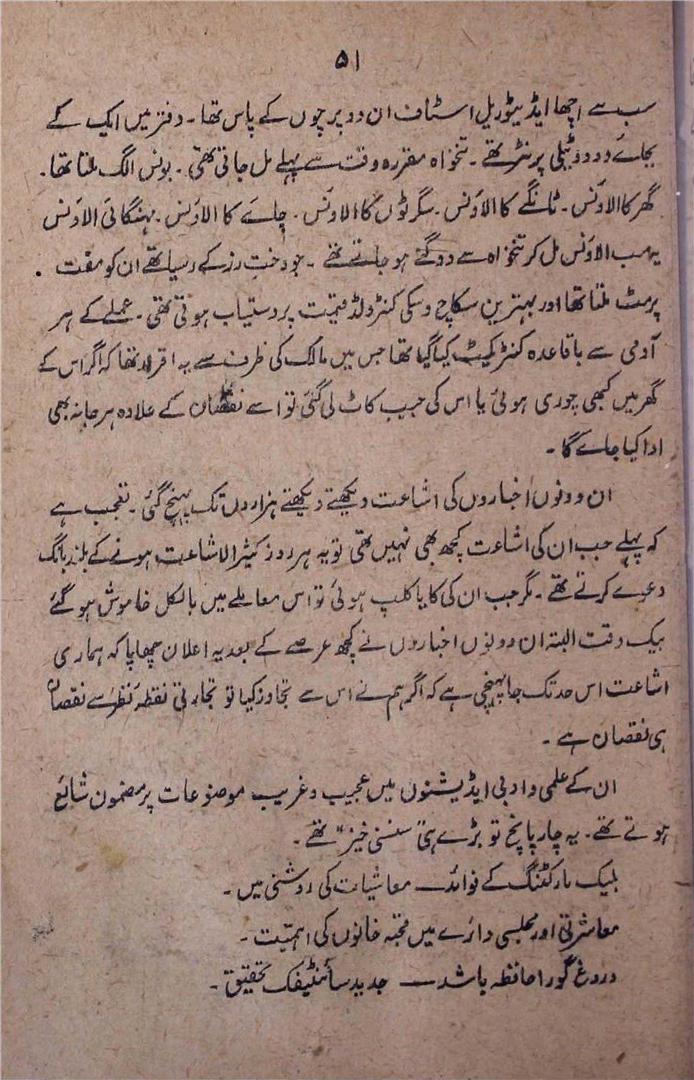 ۵۱
سب سے اچھا ایڈیٹوریل اسٹاف ان دو پرچوں کے پاس تھا۔ دفتر میں ایک کے
بجائے دو دو ٹیلی پرنٹر تھے۔ تنخواہ مقررہ وقت سے پہلے مل جاتی تھی۔ بونس الگ ملتا تھا۔
گھر کا الاؤنس۔ ٹانگے کا الاؤنس۔ سگرٹوں کا الاؤنس۔ چائے کا الاؤنس۔ مہنگائی الاؤنس
یہ سب الاؤنس مل کر تنخواہ سے دوگنے ہو جاتے تھے۔ جو دخت رز کے رسیا تھے ان کو مفت
پرمٹ ملتا تھا اور بہترین سکاچ وسکی کنٹرولڈ قیمت پر دستیاب ہوتی تھی۔ عملے کے ہر
آدمی سے باقاعدہ کنٹریکٹ کیا گیا تھا جس میں مالک کی طرف سے یہ اقرار تھا کہ اگر اس کے
گھر میں کبھی چوری ہوئی یا اس کی جیب کاٹ لی گئی تو اسے نقصان کے علاوہ ہرجانہ بھی
ادا کیا جائے گا۔
ان دونوں اخباروں کی اشاعت دیکھتے دیکھتے ہزاروں تک پہنچ گئی۔ تعجب ہے
کہ پہلے جب ان کی اشاعت کچھ بھی نہیں تھی تو یہ ہر روز کثیر الاشاعت ہونے کے بلند بانگ
دعوے کرتے تھے۔ مگر جب ان کی کایا کلپ ہوئی تو اس معاملے میں بالکل خاموش ہو گئے
بیک وقت البتہ ان دونوں اخباروں نے کچھ عرصے کے بعد یہ اعلان چھاپا کہ ہماری
اشاعت اس حد تک جا پہنچی ہے کہ اگر ہم نے اس سے تجاوز کیا تو تجارتی نقطہ نظر سے نقصان
ہی نقصان ہے۔
ان کے علمی و ادبی ایڈیشنوں میں عجیب و غریب موضوعات پر مضمون شائع
ہوتے تھے۔ یہ چار پانچ تو بڑے ہی سنسنی خیز تھے۔
بلیک مارکٹنگ کے فوائد — معاشیات کی روشنی میں۔
معاشرتی اور مجلسی دائرے میں قحبہ خانوں کی اہمیت۔
دروغ گو را حافظہ باشد — جدید سائنٹیفک تحقیق۔